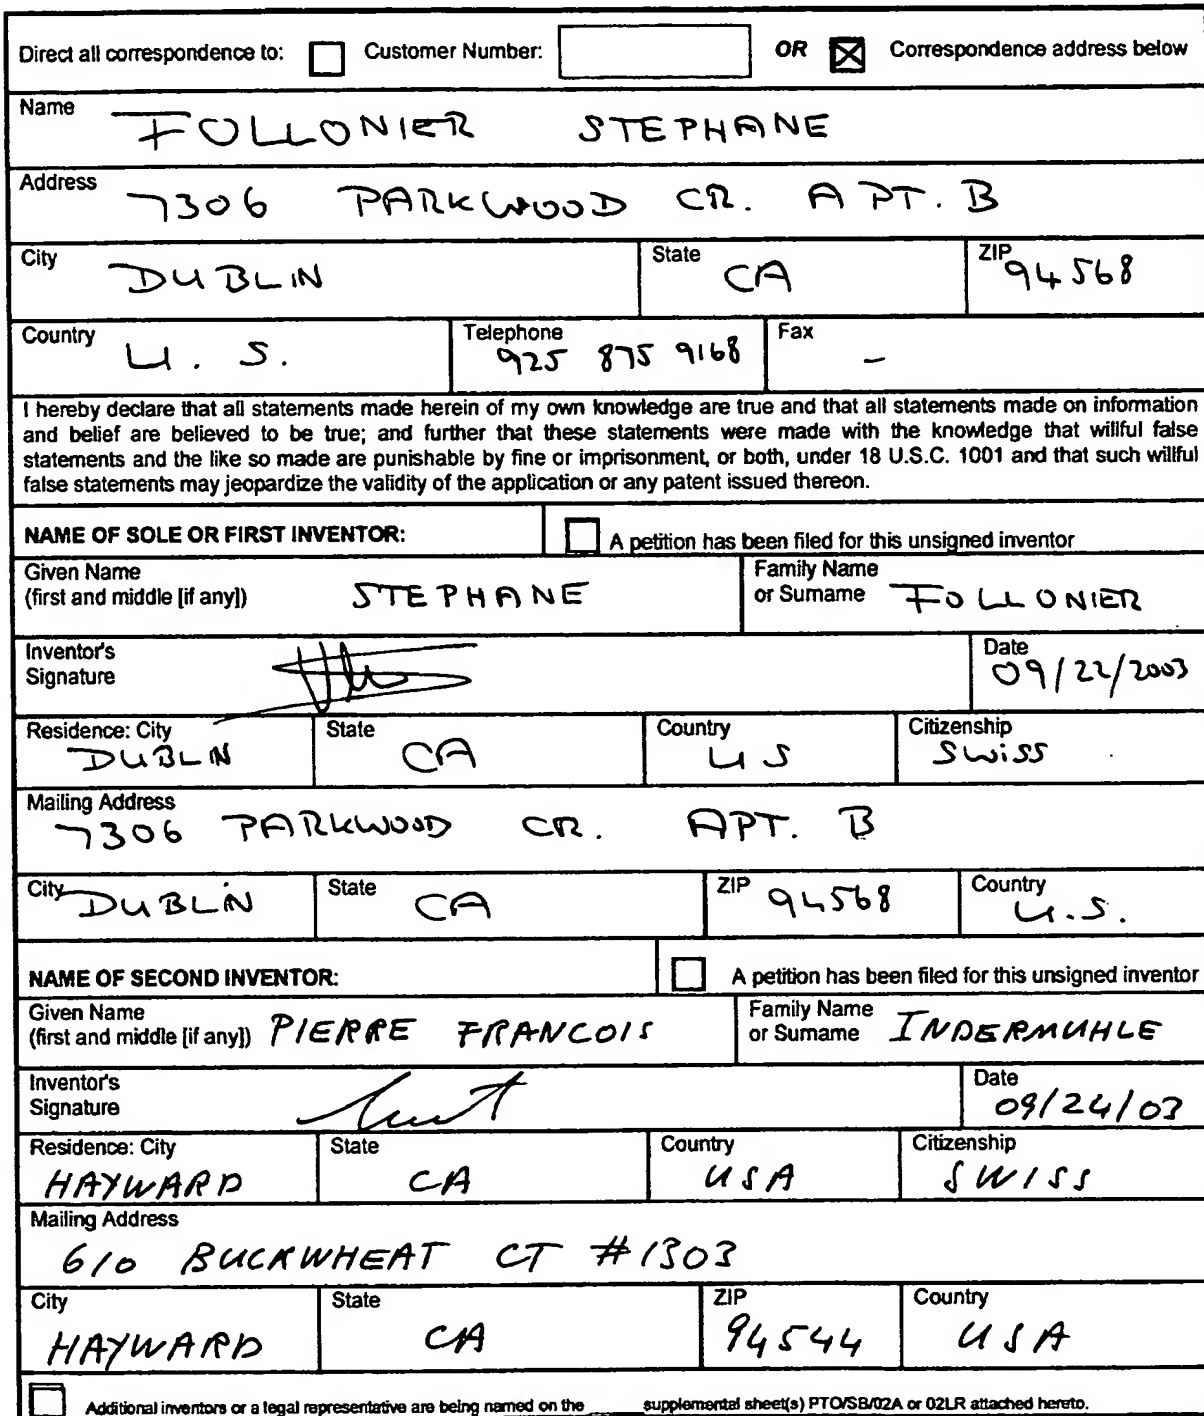 Direct all correspondence to: Customer Number: OR Correspondence address below
Name FOLLONIER STEPHANE
Address 7306 PARKWOOD CR. APT. B
City DUBLIN State CA ZIP 94568
Country U. S. Telephone 925 875 9168 Fax –
I hereby declare that all statements made herein of my own knowledge are true and that all statements made on information
and belief are believed to be true; and further that these statements were made with the knowledge that willful false
statements and the like so made are punishable by fine or imprisonment, or both, under 18 U.S.C. 1001 and that such willful
false statements may jeopardize the validity of the application or any patent issued thereon.
NAME OF SOLE OR FIRST INVENTOR: A petition has been filed for this unsigned inventor
Given Name
(first and middle [if any]) STEPHANE
Family Name
or Surname FOLLONIER
Inventor's
Signature
Date
09/22/2003
Residence: City DUBLIN State CA Country US Citizenship SWISS
Mailing Address
7306 PARKWOOD CR. APT. B
City DUBLIN State CA ZIP 94568 Country U.S.
NAME OF SECOND INVENTOR: A petition has been filed for this unsigned inventor
Given Name
(first and middle [if any]) PIERRE FRANCOIS
Family Name
or Surname INDERMUHLE
Inventor's
Signature
Date
09/24/03
Residence: City HAYWARD State CA Country USA Citizenship SWISS
Mailing Address
610 BUCKWHEAT CT #1303
City HAYWARD State CA ZIP 94544 Country USA
Additional inventors or a legal representative are being named on the ____ supplemental sheet(s) PTO/SB/02A or 02LR attached hereto.